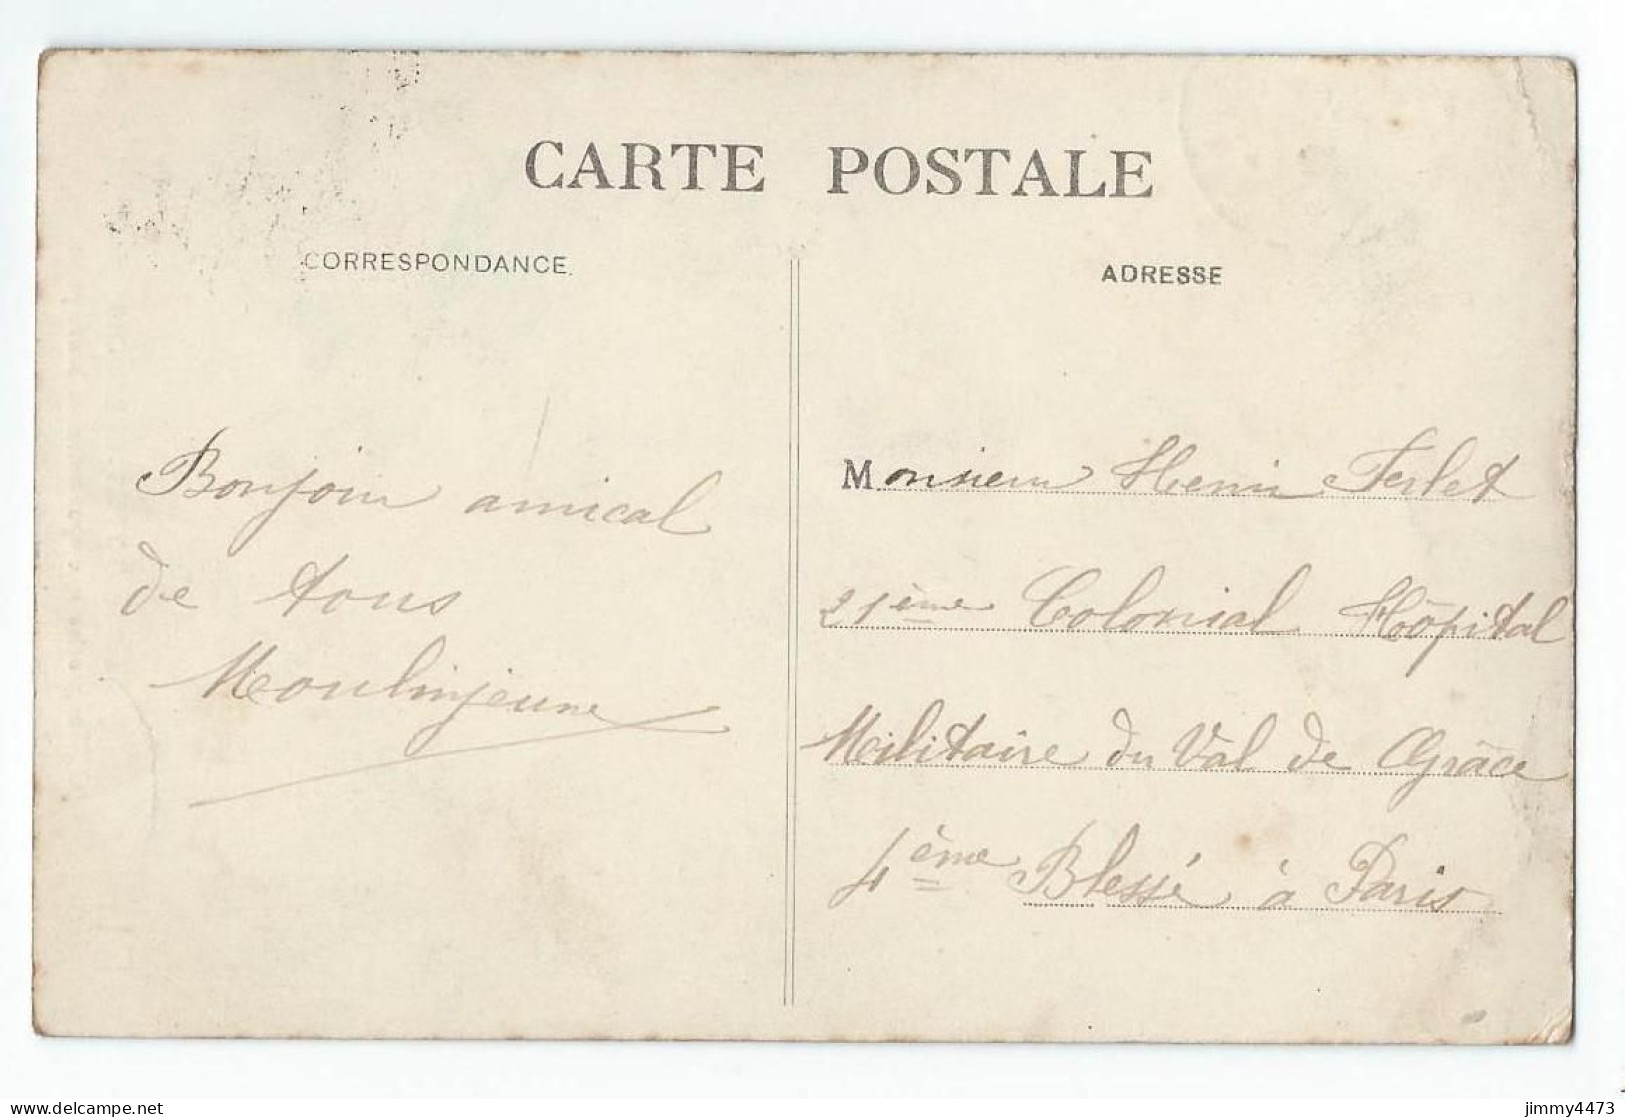 CARTE POSTALE
CORRESPONDANCE
ADRESSE
Bonjour amical
de tous
Moulinjeune
Monsieur Henri Ferlet
21ème Colonial Hôpital
Militaire du Val de Grâce
4ème Blessé à Paris
delcampe.net
jimmy4473